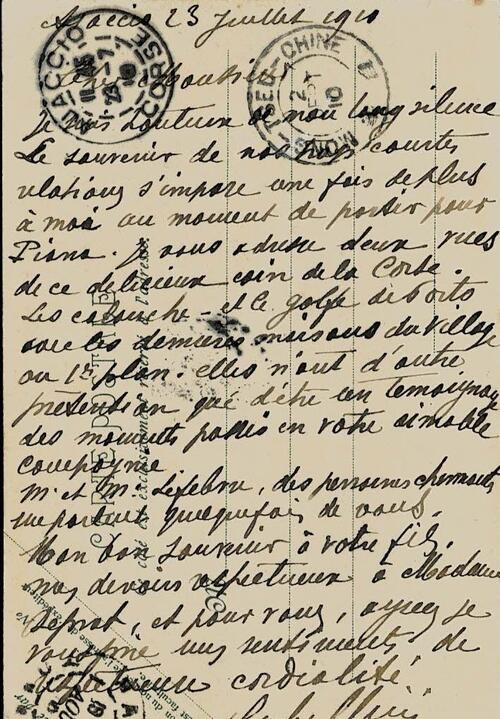 Ajaccio 23 Juillet 1910
Cher Monsieur
Je suis honteux de mon long silence
Le souvenir de nos trop courtes
relations s'impose une fois de plus
à moi au moment de partir pour
Piana. Je vous adresse deux vues
de ce délicieux coin de la Corse.
Les calanche - et le golfe de Porto
avec les dernières maisons du village
au 1er plan. elles n'ont d'autre
prétention que d'être un témoignage
des moments passés en votre aimable
compagnie
M. et M. Lefebre, des personnes charmantes
me parlent quequefois de vous.
Mon bon souvenir à votre fils,
mes devoirs respectueux à Madame
et pour vous, agréez je
vous prie mes sentiments de
respectueuse cordialité
AJACCIO
CORSE
23-7
10
MONG-TSEU-CHINE
10
CARTE POSTALE
Ce côté est exclusivement réservé à l'adresse.
AOU
10